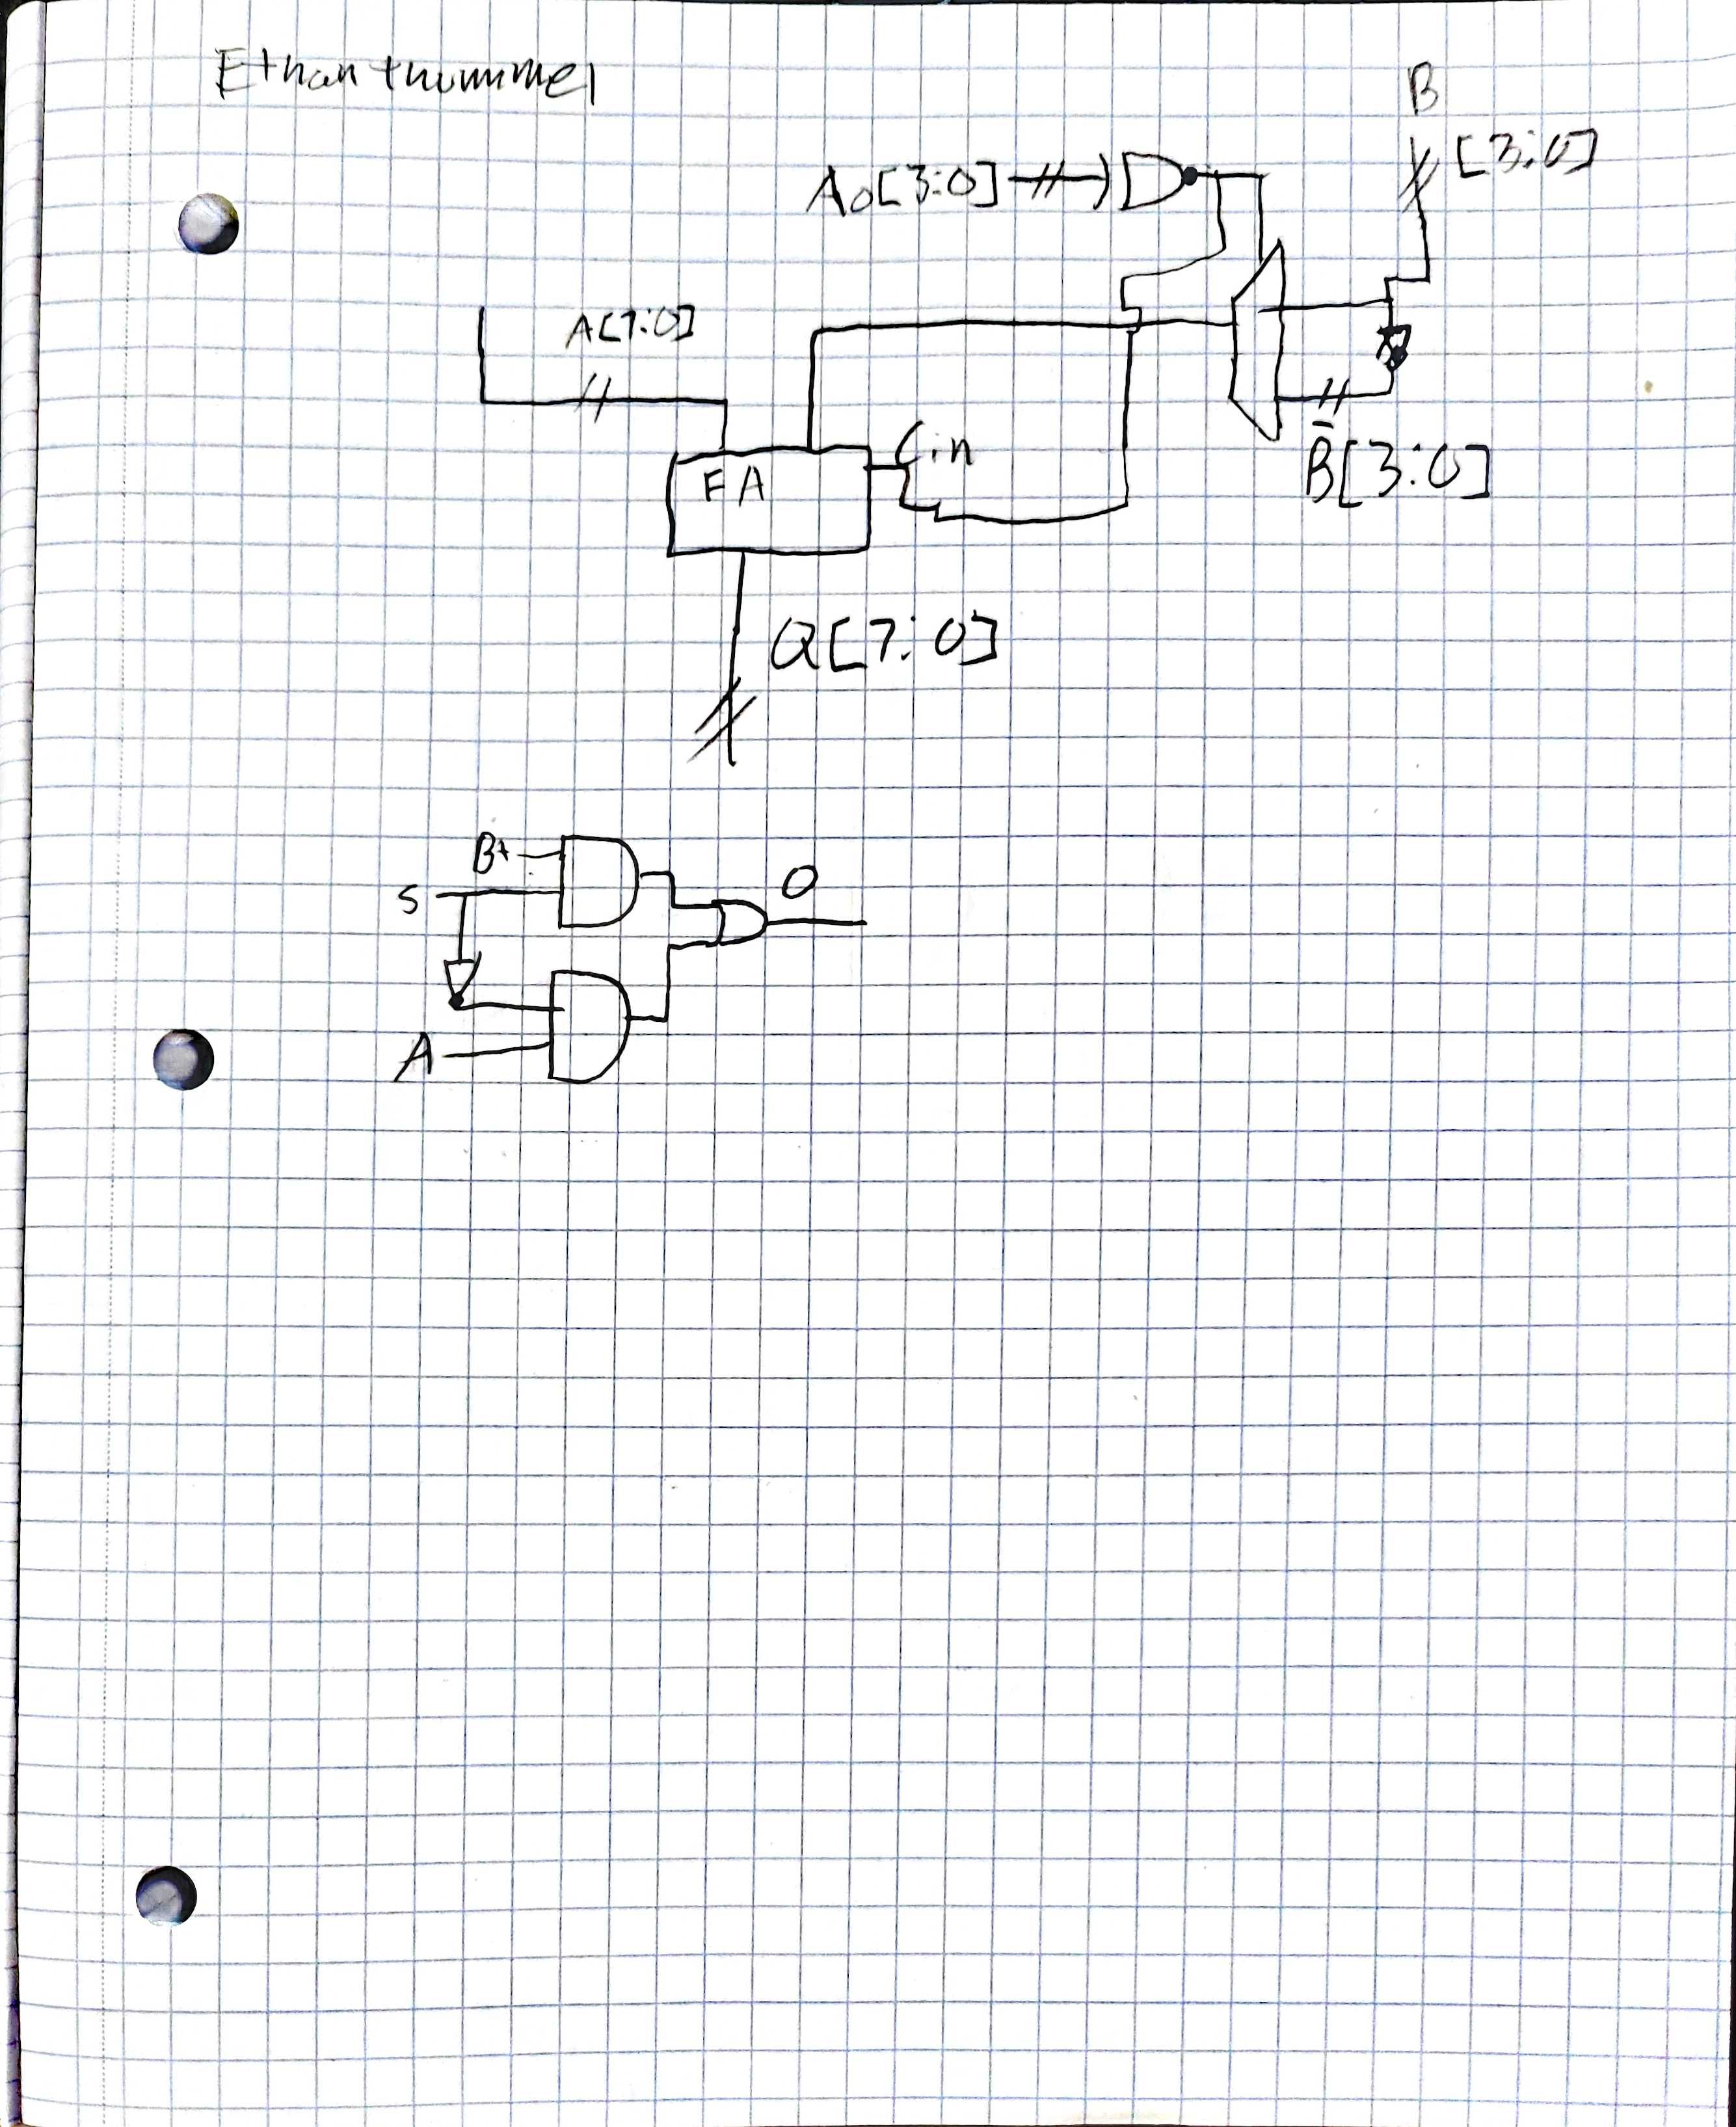 Ethan thummel
B
A0[3:0]
[3:0]
A[7:0]
Cin
FA
B̄[3:0]
Q[7:0]
B
S
O
A